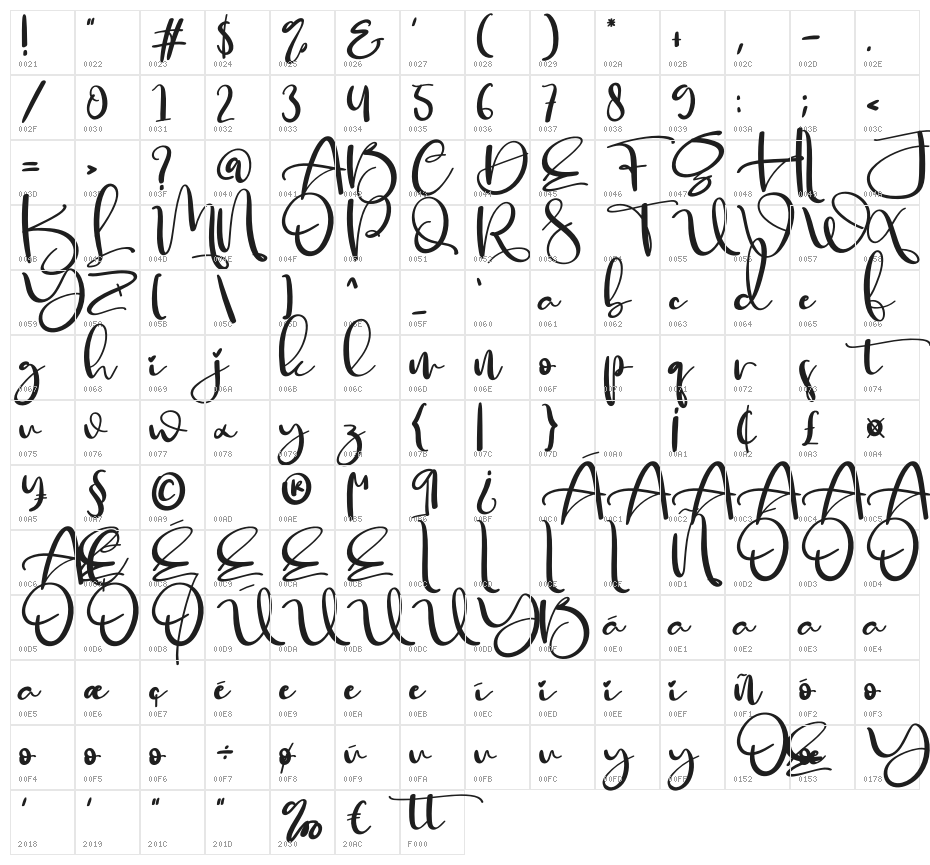 ! " # $ % & ' ( ) * + , - .
0021 0022 0023 0024 0025 0026 0027 0028 0029 002A 002B 002C 002D 002E
/ 0 1 2 3 4 5 6 7 8 9 : ; <
002F 0030 0031 0032 0033 0034 0035 0036 0037 0038 0039 003A 003B 003C
= > ? @ A B C D E F G H I J
003D 003E 003F 0040 0041 0042 0043 0044 0045 0046 0047 0048 0049 004A
K L M N O P Q R S T U V W X
004B 004C 004D 004E 004F 0050 0051 0052 0053 0054 0055 0056 0057 0058
Y Z [ \ ] ^ _ ` a b c d e f
0059 005A 005B 005C 005D 005E 005F 0060 0061 0062 0063 0064 0065 0066
g h i j k l m n o p q r s t
0067 0068 0069 006A 006B 006C 006D 006E 006F 0070 0071 0072 0073 0074
u v w x y z { | } ¡ ¢ £ ¤
0075 0076 0077 0078 0079 007A 007B 007C 007D 00A0 00A1 00A2 00A3 00A4
¥ § © ® µ ¶ ¿ Á A A A A A
00A5 00A7 00A9 00AD 00AE 00B5 00B6 00BF 00C0 00C1 00C2 00C3 00C4 00C5
Æ Ç É E E E I I I I Ñ O O O
00C6 00C7 00C8 00C9 00CA 00CB 00CC 00CD 00CE 00CF 00D1 00D2 00D3 00D4
O O Ø U U U U Y ß á a a a a
00D5 00D6 00D8 00D9 00DA 00DB 00DC 00DD 00DF 00E0 00E1 00E2 00E3 00E4
a æ ç é e e e í i i i ñ ó o
00E5 00E6 00E7 00E8 00E9 00EA 00EB 00EC 00ED 00EE 00EF 00F1 00F2 00F3
o o o ÷ ø ú u u u y y Œ œ Y
00F4 00F5 00F6 00F7 00F8 00F9 00FA 00FB 00FC 00FD 00FF 0152 0153 0178
' ' " " ‰ € tt
2018 2019 201C 201D 2030 20AC F000